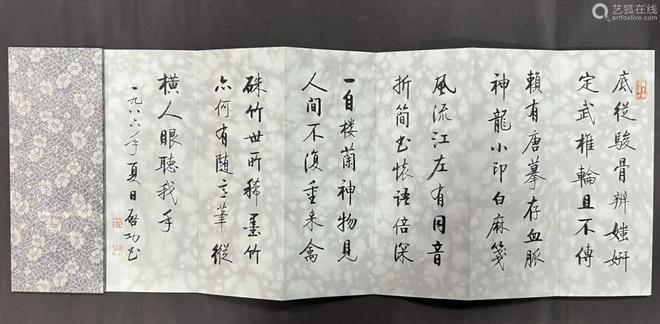 底從駿骨辨媸妍
定武椎輪且不傳
賴有唐摹存血脈
神龍小印白麻箋
風流江左有同音
折簡書懷語倍深
一自楼蘭神物見
人間不復重來禽
硃竹世所稀墨竹
亦何有随意筆縱
橫人眼聽我手
一九八六年夏日啟功書
艺狐在线
artfoxlive.com